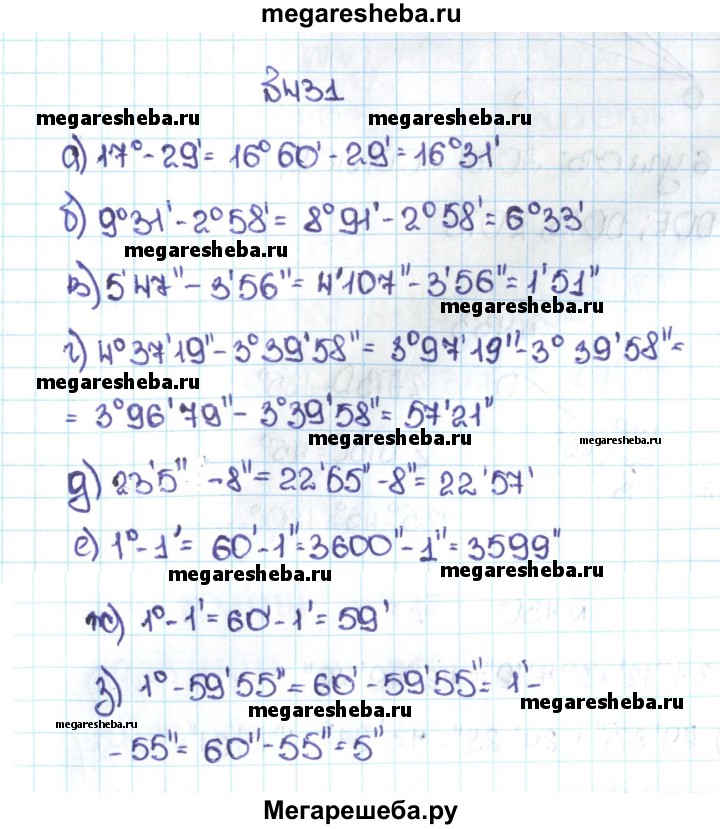 megaresheba.ru
№431
megaresheba.ru megaresheba.ru
а) 17° - 29' = 16°60' - 29' = 16°31'
б) 9°31' - 2°58' = 8°91' - 2°58' = 6°33'
megaresheba.ru
в) 5'47" - 3'56" = 4'107" - 3'56" = 1'51"
megaresheba.ru
г) 4°37'19" - 3°39'58" = 3°97'19" - 3°39'58" =
megaresheba.ru
= 3°96'79" - 3°39'58" = 57'21"
megaresheba.ru megaresheba.ru
д) 23'5" - 8" = 22'65" - 8" = 22'57'
е) 1° - 1' = 60' - 1" = 3600" - 1" = 3599"
megaresheba.ru megaresheba.ru
ж) 1° - 1' = 60' - 1' = 59'
з) 1° - 59'55" = 60' - 59'55" = 1' -
megaresheba.ru megaresheba.ru megaresheba.ru
- 55" = 60" - 55" = 5"
Мегарешеба.ру